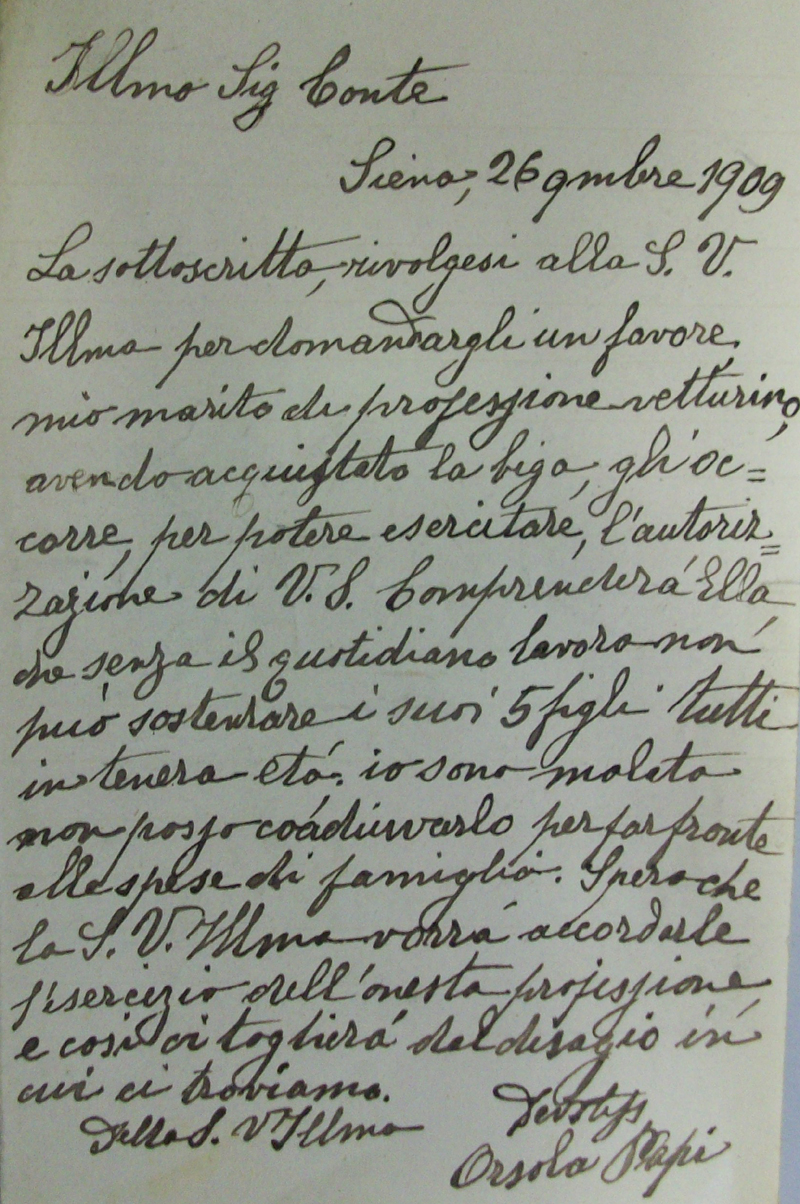 Illmo Sig Conte
Siena, 26 9mbre 1909
La sottoscritta, rivolgesi alla S. V.
Illma per domandargli un favore,
mio marito di professione vetturino,
avendo acquistato la biga, gli oc=
corre, per potere esercitare, l'autoriz=
zazione di V. S. Comprenderá Ella,
che senza il quotidiano lavoro non
può sostentare i suoi 5 figli tutti
in tenera etá. io sono malata
non posso coádiuvarlo per far fronte
alle spese di famiglia. Spero che
la S. V. Illma vorrá accordarle
l'esercizio dell'onesta professione
e cosi ci toglierá dal disagio in
cui ci troviamo.
Della S. V Illma Devotiss
Orsola Papi